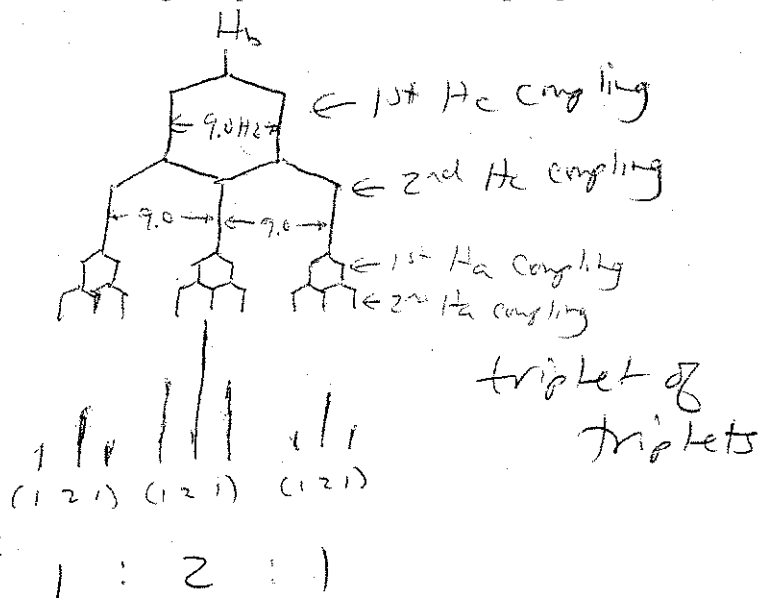 Hb
← 1st Hc coupling
← 9.0Hz →
← 2nd Hc coupling
← 9.0 → ← 9.0 →
← 1st Ha coupling
← 2nd Ha coupling
triplet of
triplets
(1 2 1) (1 2 1) (1 2 1)
1 : 2 : 1